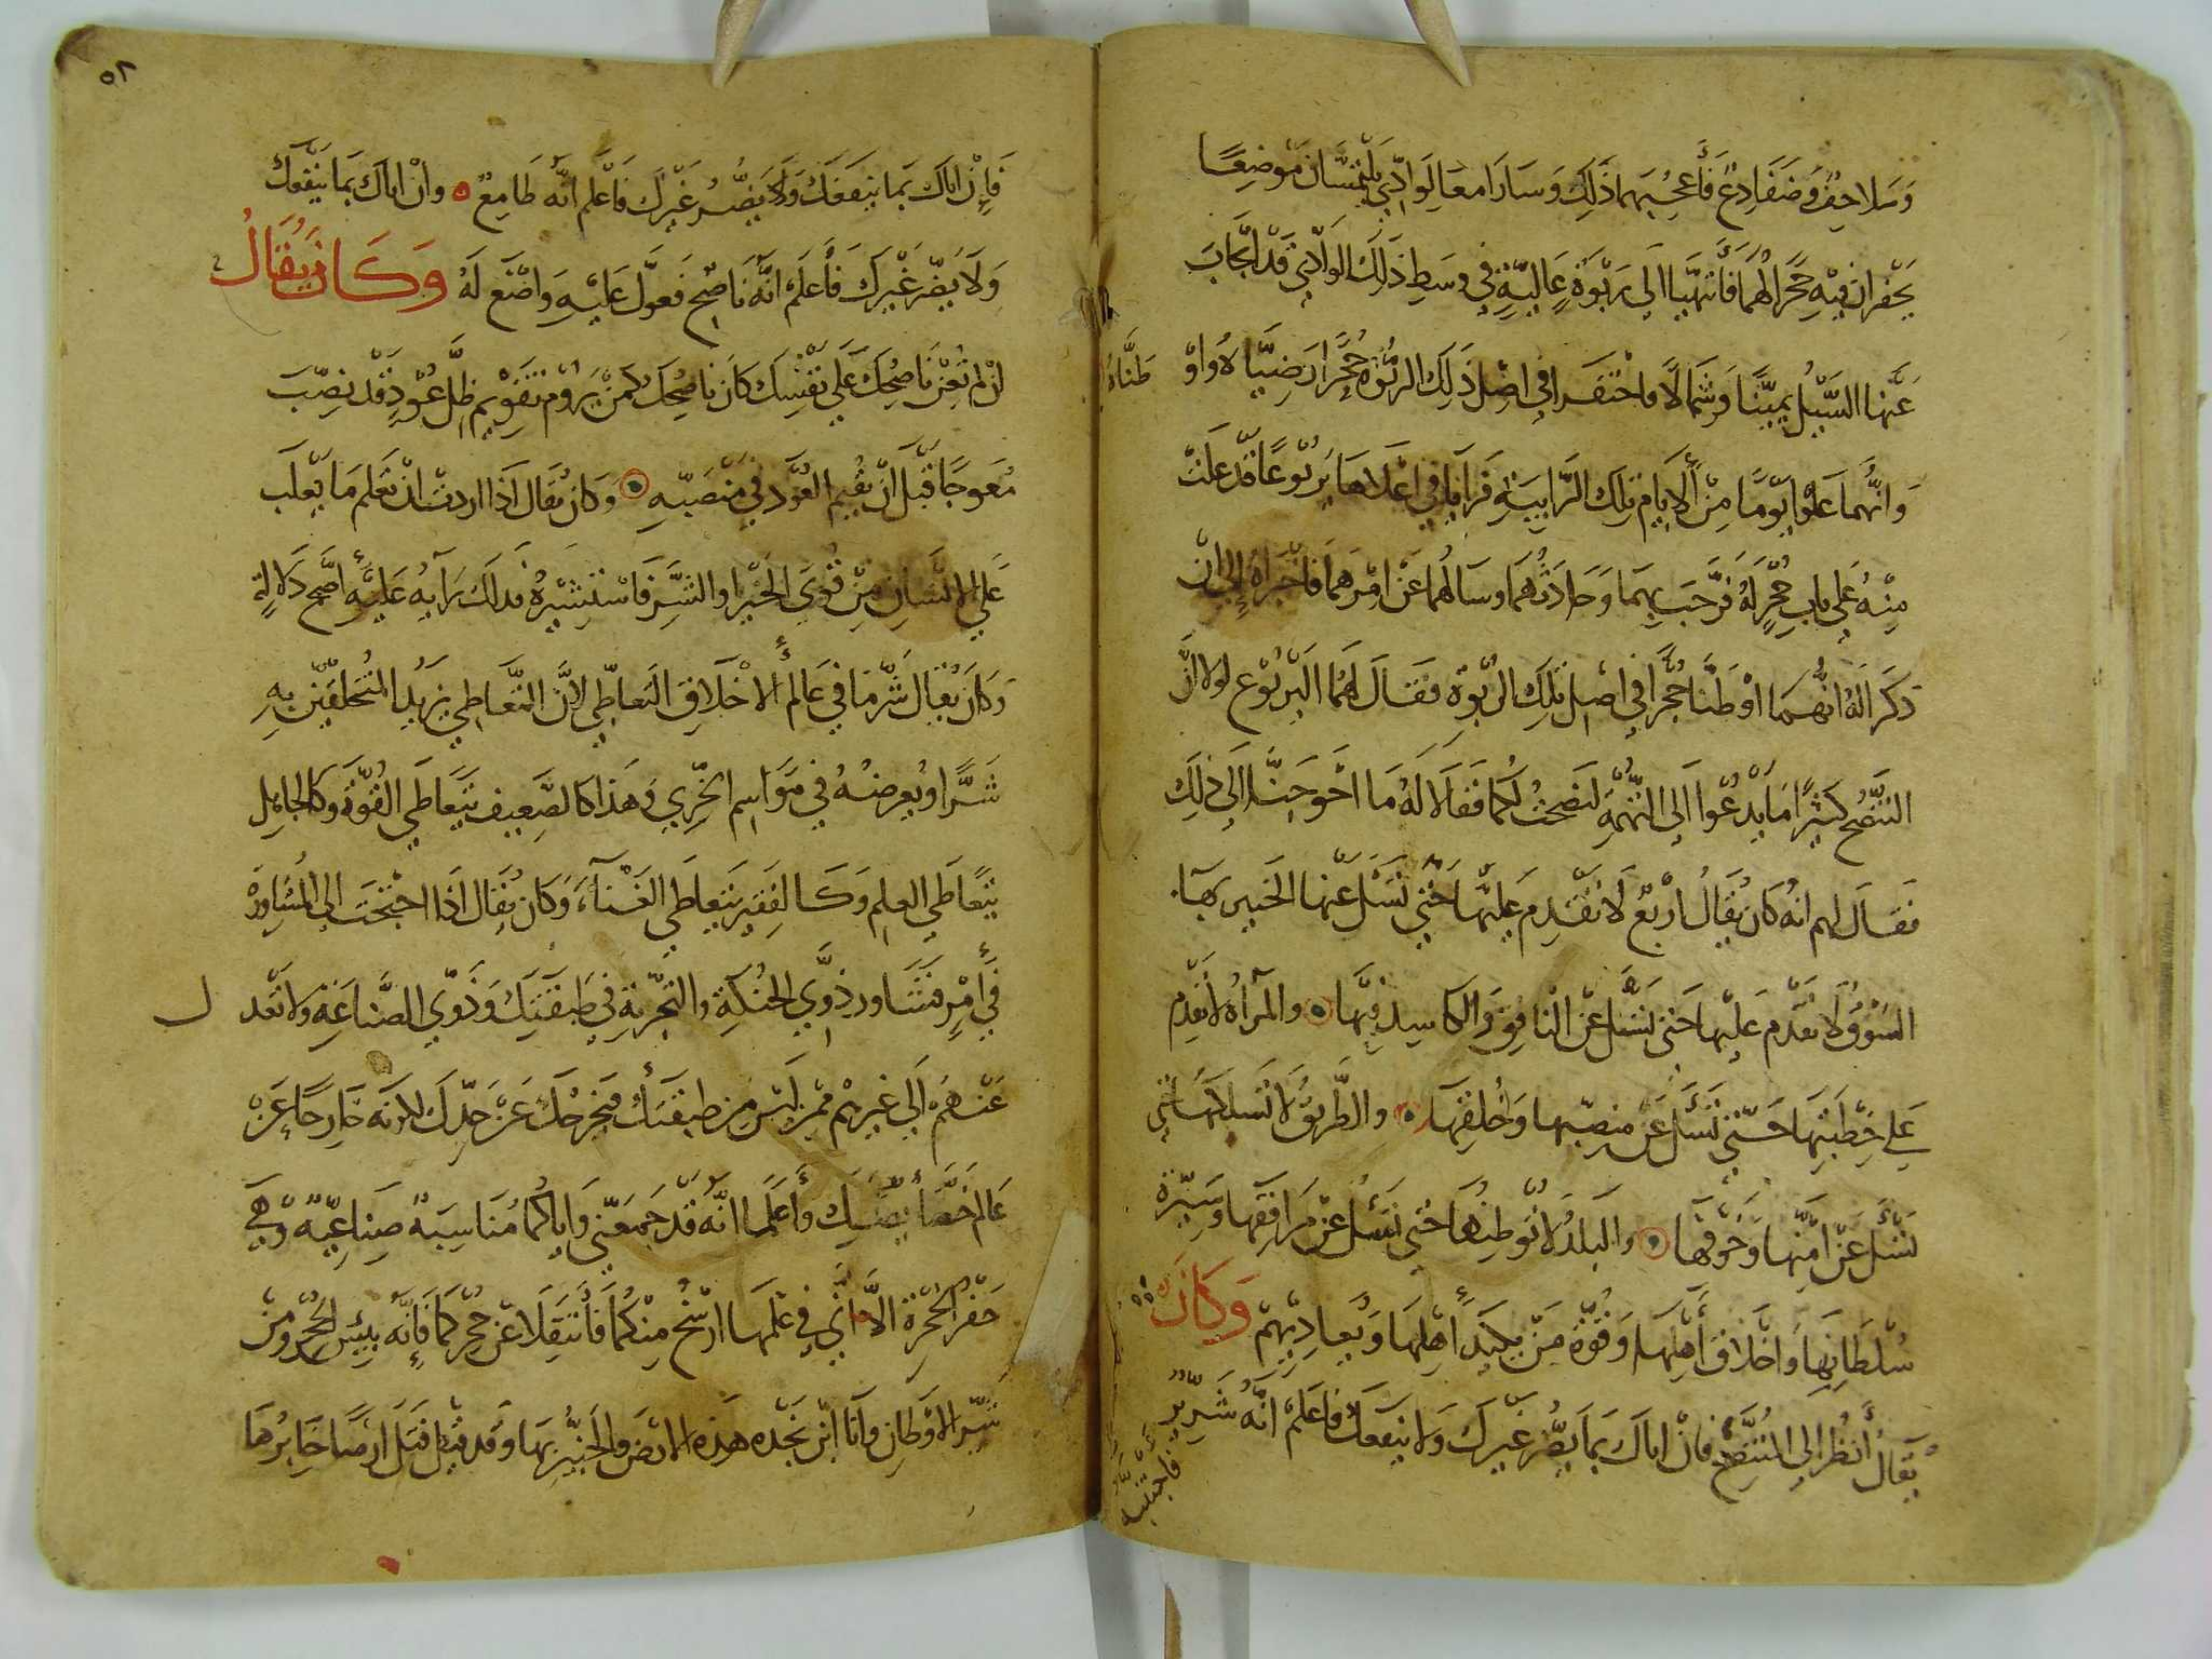 وسلاحف وضفادع فأعجبهما ذلك وسارا مع الوادي يلتمسان موضعا
يحفران فيه جحرا لهما فانتهيا الى ربوة عالية في وسط ذلك الوادي قد انجاب
عنها السيل يمينا وشمالا واحتفرا في اصل ذلك الربوة جحرا رضياه واو
طناه
وانهما علوا يوما من الايام تلك الرابية فرايا في اعلاها يربوعا قد علت
منه على باب جحر له فرحب بهما وحادثهما وسالهما عن امرهما فاخبراه الى ان
ذكرا له انهما اوطنا جحرا في اصل تلك الربوة فقال لهما اليربوع لولا ان
النصح كثيرا ما يدعوا الى التهمة لنصحت لكما فقالا له ما احوجنا الى ذلك
فقال لهم انه كان يقال اربع لا تقدم عليها حتى تسل عنها الخبير بها
السوق لا تقدم عليها حتى تسل عن النافق والكاسد فيها والمرأة لا تقدم
على خطبتها حتى تسل عن منصبها وخلقها والطريق لا تسلكها حتى
تسل عن امنها وخوفها والبلد لا توطنها حتى تسل عن مرافقها وسيرة
سلطانها واخلاق أهلها وقوة من يكيد أهلها ويعاديهم وكان
يقال أنظر الى المتنصح فان اتاك بما يضر غيرك ولا ينفعك فاعلم انه شرير
فاجتنبه
٥٢
فإن اتاك بما ينفعك ولا يضر غيرك فاعلم انه طامع وان اتاك بما ينفعك
ولا يضر غيرك فأعلم انه ناصح فعول عليه واضغ له وكان يقال
ان لم تعن ناصحك على نفسك كان ناصحك كمن يروم تقويم ظل عود قد نصب
معوجا قبل ان يقيم العود في منصبه وكان يقال اذا اردت ان تعلم ما يغلب
على الانسان من قوى الخير والشر فاستشيره فدلك رأيه عليه أصح دلالة
وكان يقال شر ما في عالم الاخلاق التعاطي لان التعاطي يزيد المتخلقين به
شرا ويعرضه في مواسم الخزي وهذا كالضعيف يتعاطى القوة وكالجاهل
يتعاطى العلم وكالفقير يتعاطى الغناء وكان يقال اذا احتجت الى المشاورة
في أمر فتشاور ذوي الحنكة والتجربة في طبقتك وذوي الصناعة ولا تعد ل
عنهم الى غيرهم ممن ليس من طبقتك فيخرجك عن حدك لكونه خارجا عن
عالم خصايصك وأعلما انه قد جمعتني واياكما مناسبة صناعية وهي
حفر الجحرة الا اني في علمها ارسخ منكما فأنتقلا عن جحركما فإنه بيس الجحر ومن
شر الاوطان وانا ابن بجدة هذه الارض والخبير بها وقد قيل قتل ارضا خابرها